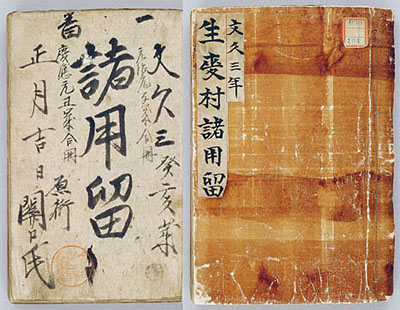 一番
文久三癸亥年
元治元子年合冊
諸用留
慶應元丑年合冊
正月吉日
関口氏
文久三年
生麥村諸用留